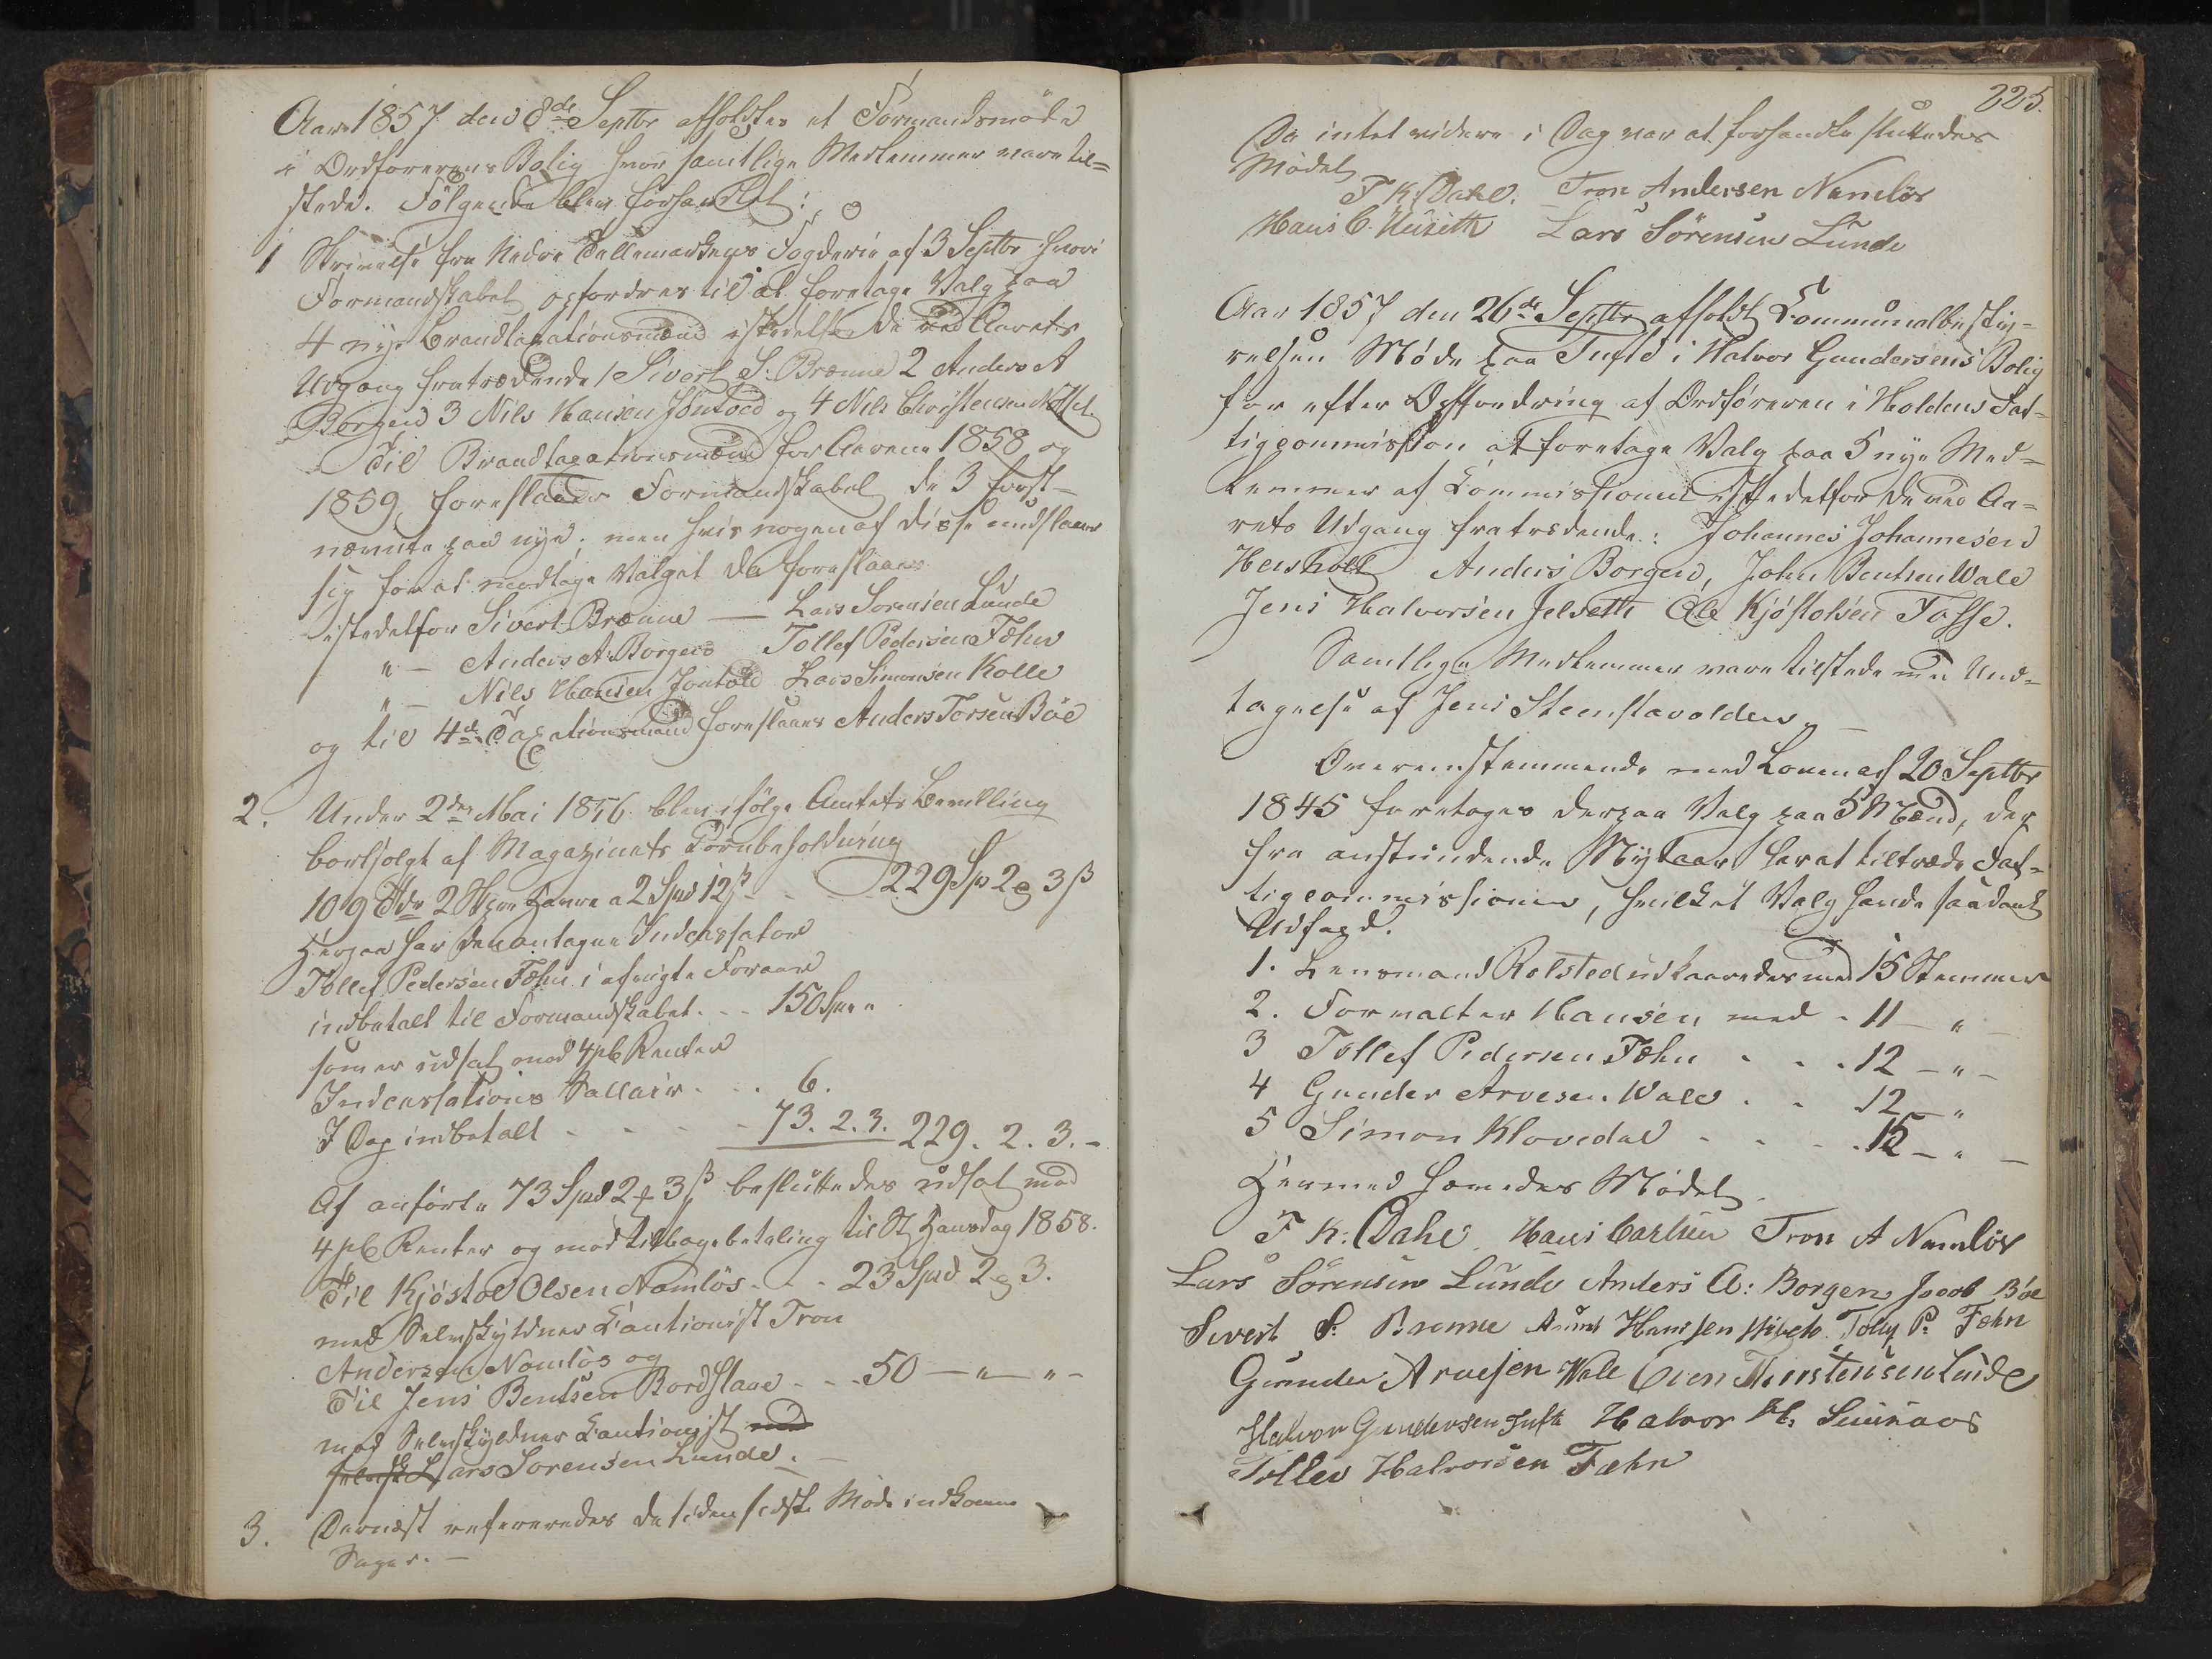 Aar 1857 den 8de Septbr afholdtes et Formandsmøde
i Ordførerens Bolig hvor samtlige Medlemmer vare til=
stede. Følgende blev forhandlet:
1 Skrivelse fra Nedre Tellemarkens Fogderie af 3 Septbr hvori
Formandskabet opfordres til at foretage Valg paa
4 nye Brandtaxationsmænd istedetfor de ved Aarets
Udgang fratrædende 1 Sivert S. Brenne 2 Anders A
Borgen 3 Nils Hansen Jontved og 4 Nils Christensen
Til Brandtaxationsmænd for Aarene 1858 og
1859 foreslaaer Formandskabet de 3 først=
nævnte paa nye; men hvis nogen af disse undslaaer
sig for at modtage Valget da foreslaaes
istedetfor Sivert Brenne — Lars Sørensen Lunde
" — Anders A. Borgen Tollef Pedersen Fæhn
" — Nils Hansen Jontved Lars Simonsen Kolle
og til 4de Taxationsmand foreslaaes Anders Torsen Bøe
2. Under 2den Mai 1856 blev ifølge Amtets Bevilling
bortsolgt af Magazinets Kornbeholdning
109 Tdr 2 Skpr Havre a 2 Spd 12 ß - - 229 Sp 2 3 ß
Herpaa har den antagne Indcassator
Tollef Pedersen Fæhn i afvigte Foraar
indbetalt til Formandskabet . . . 150 Spd "
som er udsat mod 4 pC Renter
Indcassations Sallair . . . 6.
I Dag indbetalt - - - - 73. 2. 3. 229. 2. 3. -
Af anførte 73 Spd 2 3 ß besluttedes udsat mod
4 pC Renter og mod tilbagebetaling til St Hansdag 1858.
Til Kjøstol Olsen Namløs - - - 23 Spd 2 3.
med Selvskyldner Kautionist Tron
Andersen Namløs og
Til Jens Bentsen Bordslaae - - - 50 — " — " -
mod Selvskyldner Kautionist med
selvsk Lars Sorensen Lunde. -
3. Dernæst refereredes de siden sidste Møde indkomne
Sager. —
225.
Da intet videre i Dag var at forhandle sluttedes
Mødet
F K. Dahl. Tron Andersen Namløs
Hans C. Huseth Lars Sörensen Lunde
Aar 1857 den 26de Septbr afholdt Kommunalbesty=
relsen Møde paa Tufte i Halvor Gundersens Bolig
for efter Opfordring af Ordføreren i Holdens Fat=
tigcommission at foretage Valg paa 5 nye Med=
lemmer af Kommissionen istedetfor de ved Aa=
rets Udgang fratrædende: Johannes Johannesen
Hersholt Anders Borgen, John Bentsen Wale
Jens Halvorsen Jelseth Ole Kjøstolsen Fosse.
Samtlige Medlemmer vare tilstede med Und=
tagelse af Jens Steenstavolden. —
Overeenstemmende med Loven af 20 Septbr
1845 foretoges derpaa Valg paa 5 Mænd, der
fra anstundende Nytaar har at tiltræde Fat=
tigcommissionen, hvilket Valg havde saadant
Udfald.
1. Lensmand Rolsted udkaaredes med 15 Stemmer
2. Forvalter Hansen med - 11 — " —
3 Tollef Pedersen Fæhn . . . 12 — " —
4 Gunder Arvesen Wale . . 12 — "
5 Simon Klovedal - - - - 15 — " —
Hermed hævedes Mødet.
F K. Dahl. Hans Carlsen Tron A Namløs
Lars Sörensen Lunde Anders A: Borgen Jacob Bøe
Sivert S. Brenne Hansen Tollef P. Fehn
Gunder Arvesen Wale Even Thorstensen Lunde
Halvor Gundersen Tufte Halvor
Tollev Halvorsen Fæhn